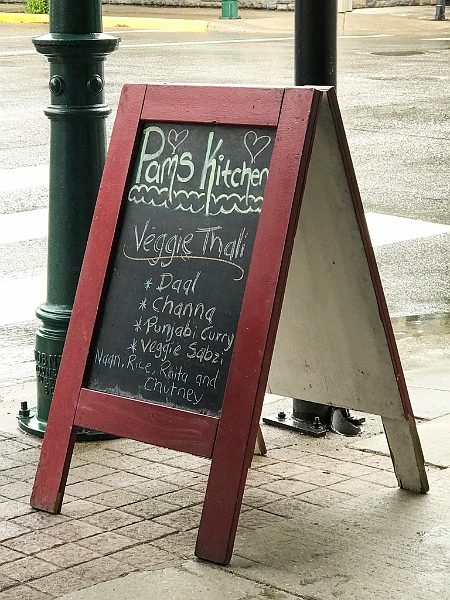 Pam's Kitchen
Veggie Thali
* Daal
* Channa
* Punjabi Curry
* Veggie Sabzi
Naan, Rice, Raita and
Chutney